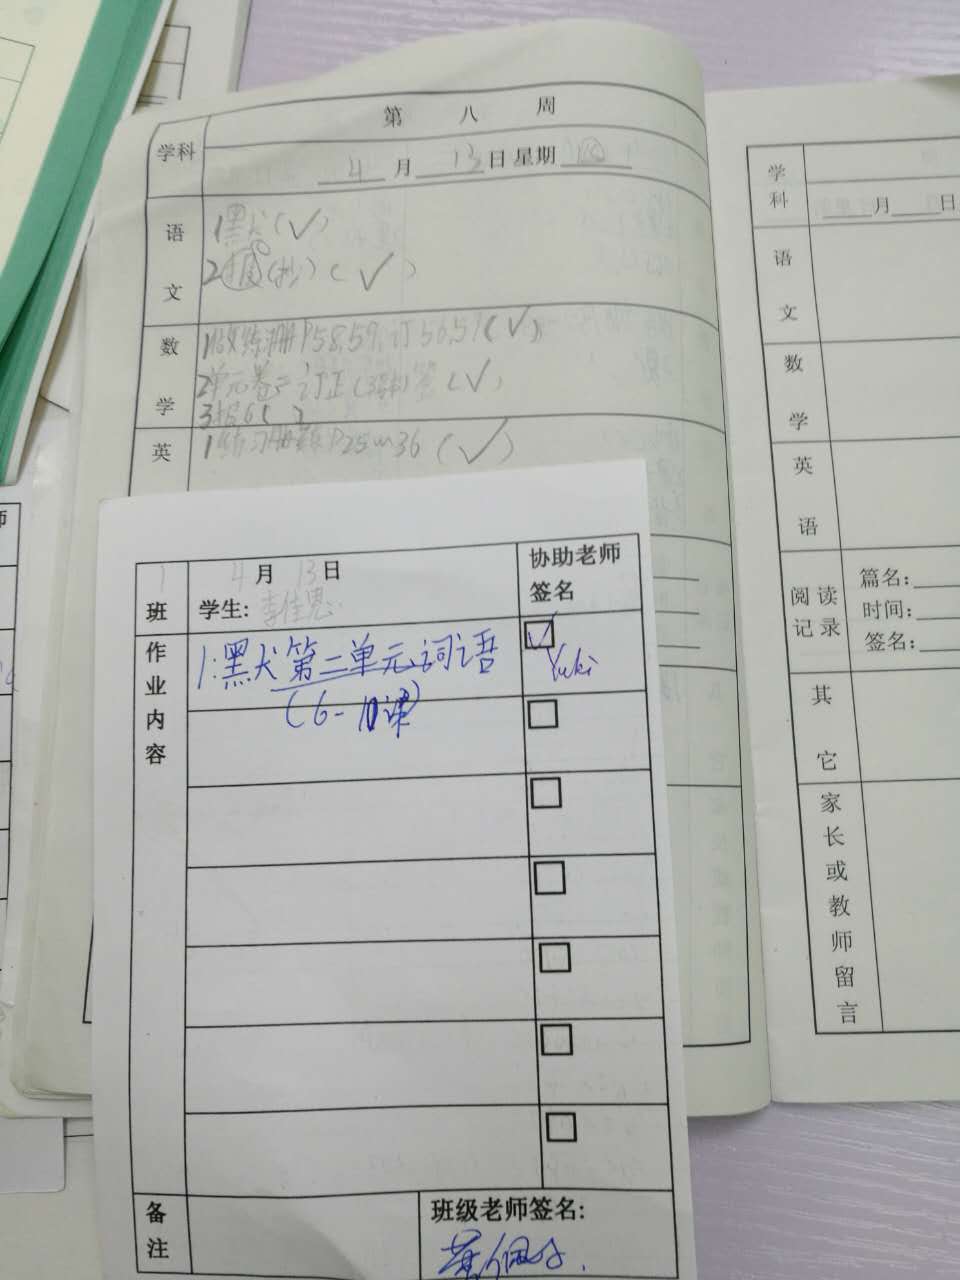 第 八 周
学科
4月13日 星期四
语文
1黑犬(✓)
2报(抄)(✓)
数学
1数练册P58,59,订56,57(✓)
2单元卷二订正(✓)
3报6( )
英
P25~36(✓)
1班
4月13日
学生:李佳思
协助老师签名
作业内容
1:黑犬第二单元词语
(6-11课)
Yuki
备注
班级老师签名:
学科
月 日
语文
数学
英语
阅读记录
篇名:
时间:
签名:
其它
家长或教师留言